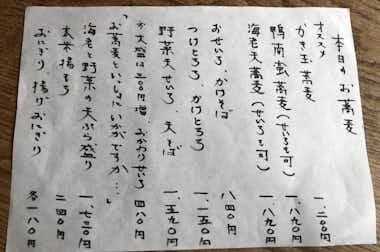 本日のお蕎麦
オススメ
かき玉蕎麦 一、二〇〇円
鴨南蛮蕎麦(せいろも可) 一、八九〇円
海老天蕎麦(せいろも可) 一、八九〇円
おせいろ、かけそば 八四〇円
つけとろろ かけとろろ 一、一五〇円
野菜天せいろ 天そば 一、五九〇円
が大盛は三〇〇円増、おかわりせいろ 四八〇円
「お蕎麦といっしょにいかがですか…」
海老と野菜の天ぷら盛り 一、七三〇円
玄米揚もち 二四〇円
おにぎり 揚げおにぎり 各一八〇円